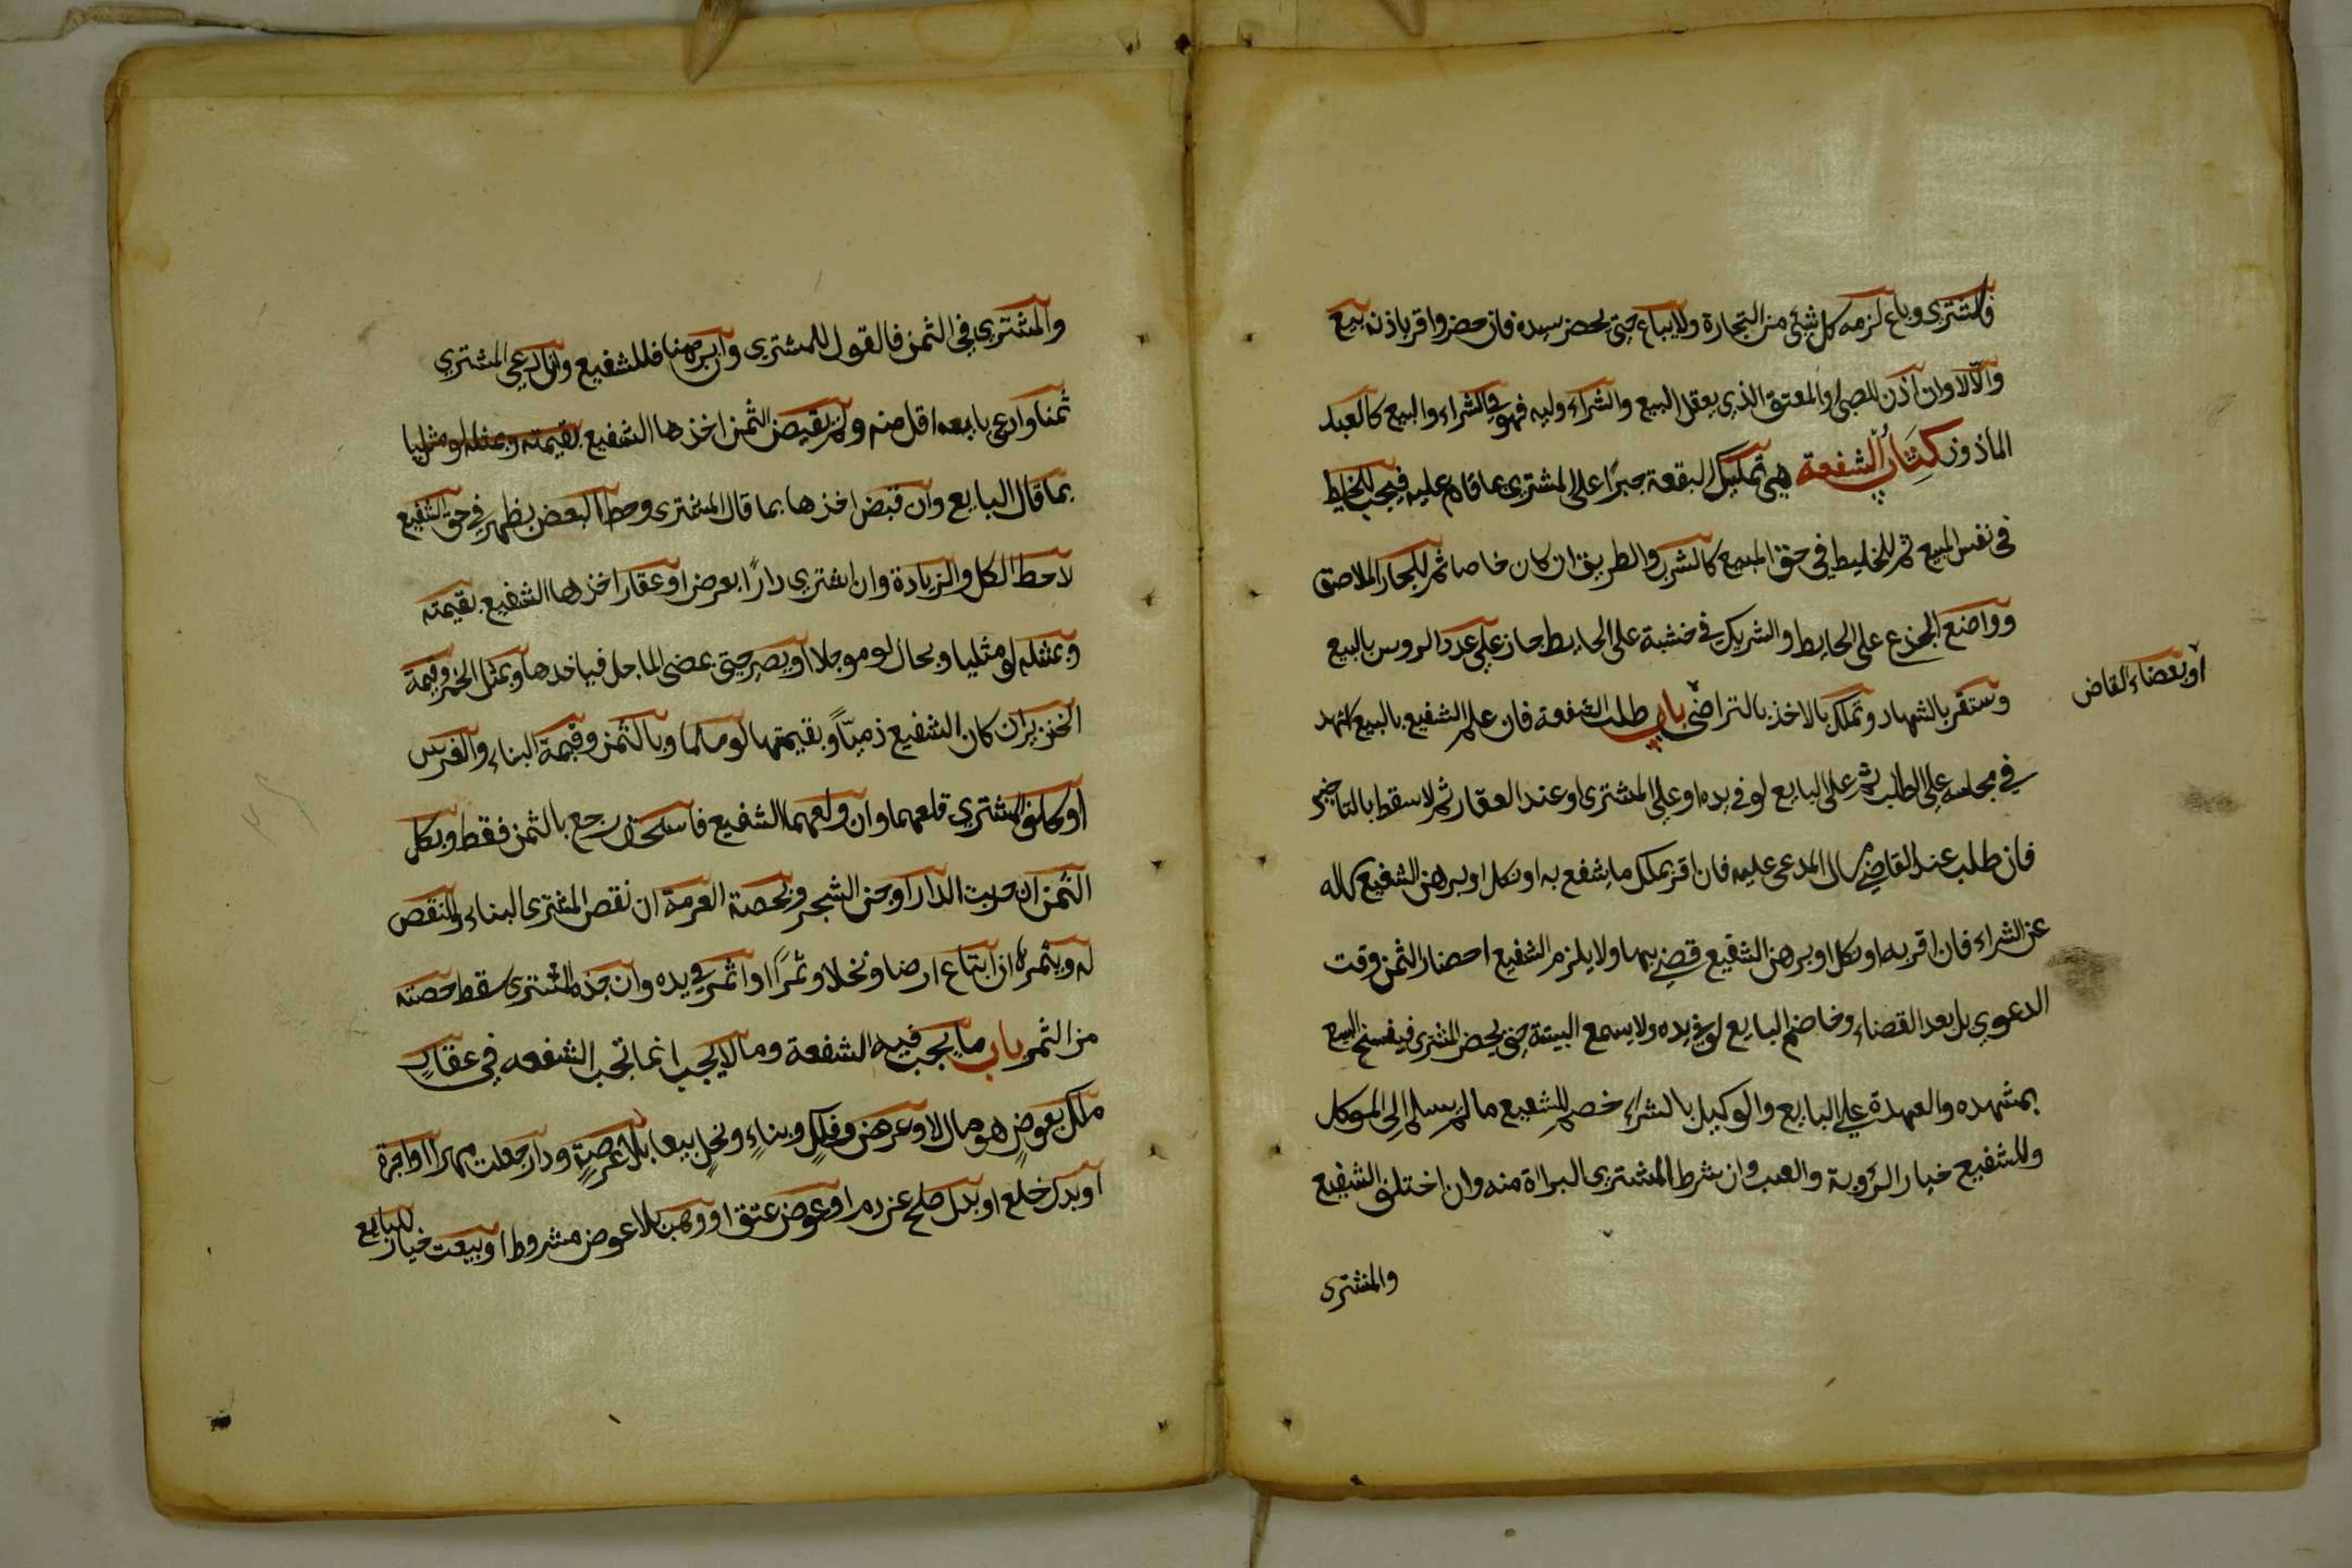 فاشترى وباع لزمه كل شئ من التجارة ولا يباع حتى يحضر سيده فان حضر واقر باذنه بيع
والّا لا وان اذن للصبي او المعتوه الذي يعقل البيع والشراء وليه فهو في الشراء والبيع كالعبد
الماذون كِتَابُ الشفعة هي تمليك البقعة جبرًا على المشترى بما قام عليه فيجب للخليط
فى نفس المبيع ثم للخليط في حق المبيع كالشرب والطريق ان كان خاصا ثم للجار الملاصق
وواضع الجذع على الحايط والشريك في خشبة على الحايط جاز على عدد الروس بالبيع
وستقر بالشهاد وتملك بالاخذ بالتراضى باب طلب الشفعة فان علم الشفيع بالبيع اشهد
او بقضاء القاض
في مجلسه على الطلب ثم على البايع لو في يده او على المشترى او عند العقار ثم لا سقط بالتاخير
فان طلب عند القاضي سال المدعى عليه فان اقر بملك ما يشفع به او نكل او برهن الشفيع ساله
عن الشراء فان اقر به او نكل او برهن الشفيع قضي بها ولا يلزم الشفيع احضار الثمن وقت
الدعوي بل بعد القضاء وخاصم البايع لو في يده ولا يسمع البينة حتى يحضر المشترى فيفسخ البيع
بمشهده والعهدة على البايع والوكيل بالشراء خصم للشفيع مالم يسلم الى الموكل
وللشفيع خيار الرؤية والعيب وان شرط المشترى البراة منه وان اختلف الشفيع
والمشترى
والمشتري في الثمن فالقول للمشتري وان برهنا فللشفيع وان ادعى المشتري
ثمنا وادعى بايعه اقل منه ولم يقبض الثمن اخذها الشفيع بقيمته وبمثله لو مثليا
بما قال البايع وان قبض اخذها بما قال المشترى وحط البعض يظهر في حق الشفيع
لا حط الكل والزيادة وان اشتري دارًا بعرض او عقار اخذها الشفيع بقيمته
وبمثله لو مثليا وبحال لو موجلا او يصبر حتى يمضى الماجل فياخدها وبمثل الخمر وقيمة
الخنزير ان كان الشفيع ذميّا وبقيمتها لو مسلما وبالثمن وقيمة البناء والغرس
او كلف المشتري قلعهما وان ولعهما الشفيع فاستحق رجع بالثمن فقط وبكل
الثمن ان خربت الدار او جف الشجر وبحصة العرصة ان نقص المشترى البناء والنقص
له وبثمره ان ابتاع ارضا ونخلا وثمرًا او اثمر في يده وان جذه المشتري سقط حصته
من الثمن باب ما يجب فيه الشفعة وما لا يجب انما تجب الشفعه في عقارٍ
ملك بعوضٍ هو مال لا وعرض وفلكٍ وبناءٍ ونخلٍ بيعا بلا عرصةٍ ودار جعلت مهرا او اجرة
او بدل خلع او بدل صلح عن دم او عوض عتق او وهبت بلا عوض مشروط او بيعت خيار للبايع